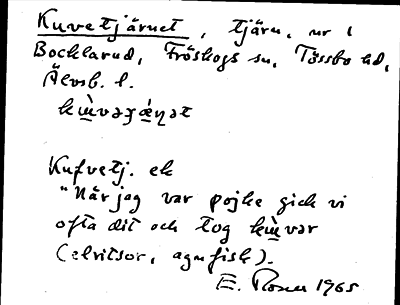 Kuvetjärnet, tjärn, nr 1
Bocklarud, Fröskogs sn, Tössbo hd,
Älvsb. l.
Kufvetj. ek
"När jag var pojke gick vi
ofta dit och tog
(elritsor, agnfisk).
E. 1965